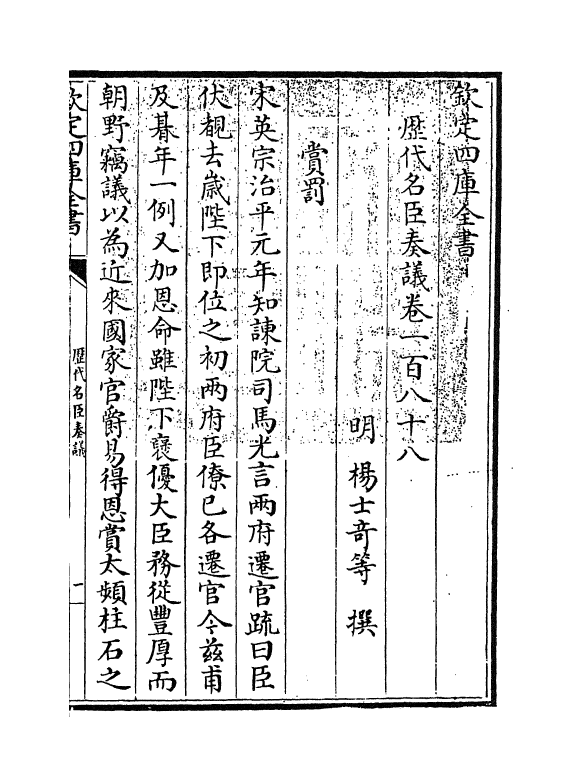 欽定四庫全書
歴代名臣奏議卷一百八十八
明 楊士竒等 撰
賞罰
宋英宗治平元年知諫院司馬光言兩府遷官䟽曰臣
伏覩去嵗陛下即位之初兩府臣僚已各遷官今兹甫
及朞年一例又加恩命雖陛下襃優大臣務從豐厚而
朝野竊議以為近來國家官爵易得恩賞太頻柱石之
欽定四庫全書
歴代名臣奏議
一